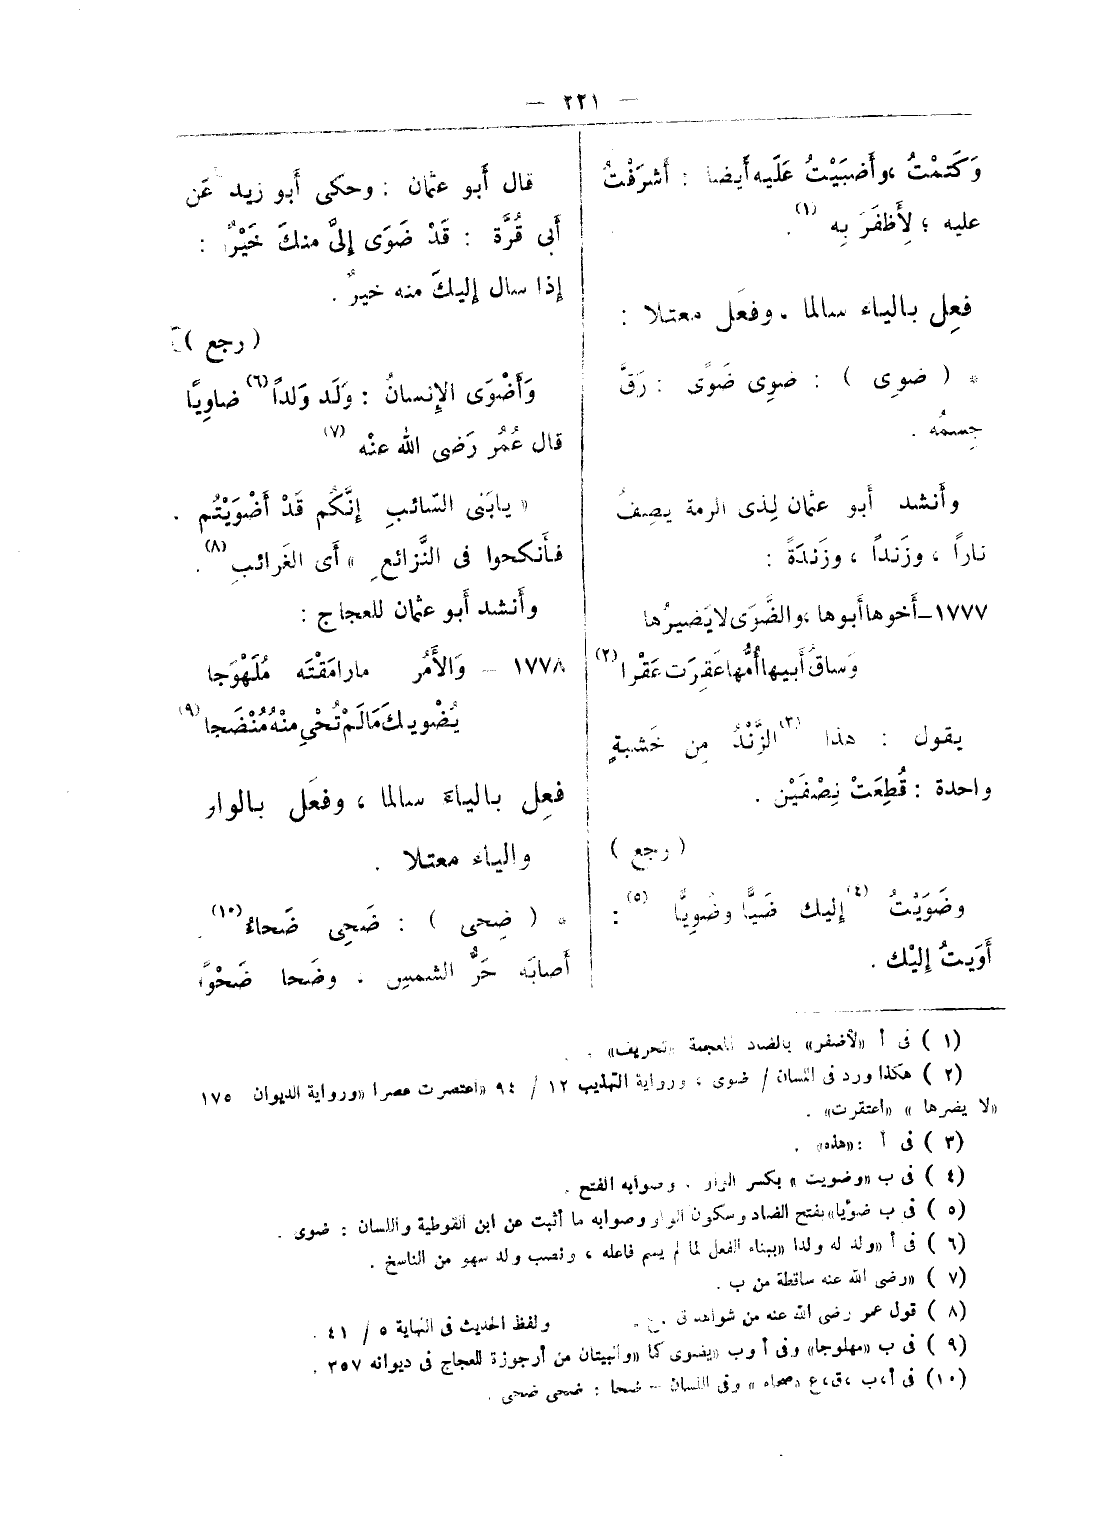 — ٢٢١ —
وَكَتمْتُ ،وأَضبَيْتُ عَلَيه أَيضا : أَشرَفْتُ
عليه ؛ لِأَظفَرَ بِه (١) .
فعِل بالياء سالما . وفعَل معتلا :
* ( ضوِى ) : ضوِى ضَوًى : رَقَّ
جِسمُه .
وأَنشد أَبو عثمان لِذى الرمة يصِفُ
ناراً ، وزَنداً ، وزَندَةً :
١٧٧٧–أَخوها أَبوها ،والضَّوَى لا يَضيرُها
وَساقُ أَبيها أُمُّها عَقِرَت عَقْرا (٢)
يقول : هذا (٣) الزَّنْدُ مِن خَشبةٍ
واحدة : قُطِعَتْ نِصْفَيْن .
( رجع )
وضَوَيْتُ (٤) إِليك ضَيًّا وضُوِيًّا (٥) :
أَوَيتُ إِليْك .
قال أَبو عثمان : وحكى أَبو زيد عَن
أَبى قُرَّة : قَدْ ضَوَى إِلىَّ منكَ خَيْرٌ :
إِذا سال إِليكَ منه خيرٌ .
( رجع )
وَأَضْوَى الإِنسانُ : وَلَد وَلداً (٦) ضاوِيًّا
قال عُمُر رَضى الله عنْه (٧)
« يابَنى السّائبِ إِنَّكُم قَدْ أَضْوَيْتُم .
فأَنكحوا فى النَّزائعِ » أَى الغَرائبِ (٨) .
وأَنشد أَبو عثمان للعجاج :
١٧٧٨ – وَالأَمُر مارامَقْتَه مُلَهْوَجا
يُضْويك مَالَمْ تُحْىِ منْهُ مُنْضَجا (٩)
فعِل بالياءَ سالما ، وفعَل بالواو
والياء معتلا .
* ( ضِحى ) : ضَحِى ضَحاءً (١٠) .
أَصابَه حَرُّ الشمسِ . وضَحا ضَحْوًا
(١ ) فى أ «لأضفر» بالضاد المعجمة «تحريف» .
(٢ ) هكذا ورد فى اللسان / ضوى ، ورواية التهذيب ١٢ / ٩٤ «اعتصرت عصرا «ورواية الديوان ١٧٥
«لا يضرها » «اعتقرت» .
(٣ ) فى أ : «هذه» .
(٤ ) فى ب «وضويت » بكسر الواو . وصوابه الفتح .
(٥ ) فى ب ضوْيا» بفتح الضاد وسكون الواو وصوابه ما أثبت عن ابن القوطية واللسان : ضوى .
(٦ ) فى أ «ولد له ولدا «ببناء الفعل لما لم يسم فاعله ، ونصب ولد سهو من الناسخ .
(٧ ) «رضى الله عنه ساقطة من ب .
(٨ ) قول عمر رضى الله عنه من شواهد ق .ع . ولفظ الحديث فى النهاية ٥ / ٤١ .
(٩ ) فى ب «مهلوجا» وفى أ وب «يضوى كما «والبيتان من أرجوزة للعجاج فى ديوانه ٣٥٧ .
(١٠) فى أ،ب ،ق،ع «ضحاه » وفى اللسان – ضحا : ضحى ضحى .